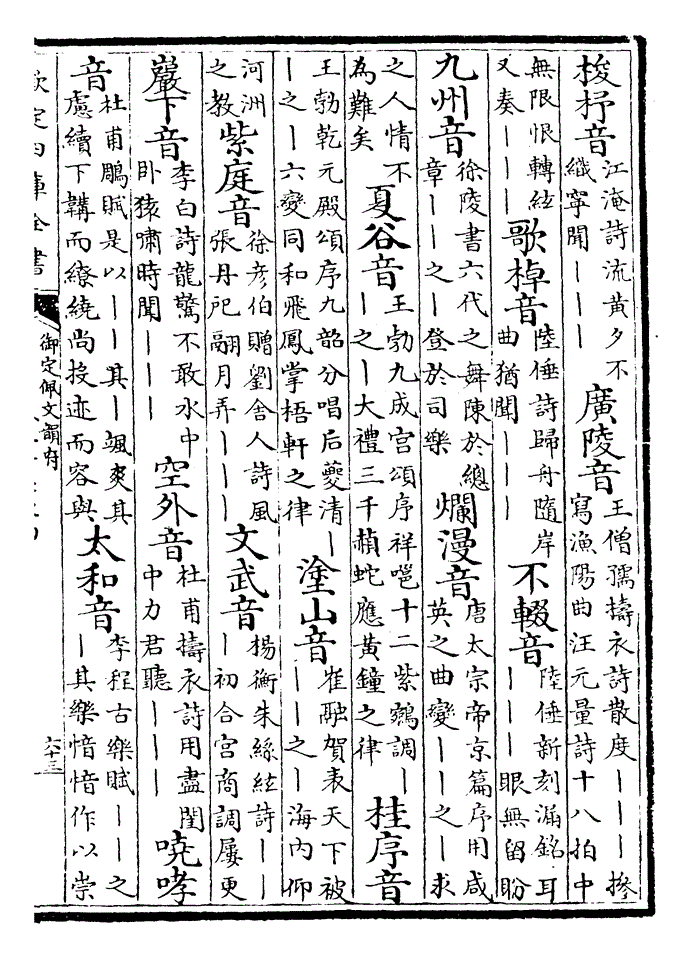 梭杼音江淹詩流黃夕不織寧聞｜｜｜廣陵音王僧孺擣衣詩散度｜｜｜摻寫漁陽曲汪元量詩十八拍中
無限恨轉絃又奏｜｜｜歌棹音陸倕詩歸舟隨岸曲猶聞｜｜｜不輟音陸倕新刻漏銘耳｜｜｜眼無留盼
九州音徐陵書六代之舞陳於總章｜｜之｜登於司樂爛漫音唐太宗帝京篇序用咸英之曲變｜｜之｜求
之人情不為難矣夏谷音王勃九成宮頌序祥嗈十二紫鵷調｜｜之｜大禮三千頳蛇應黃鐘之律桂序音
王勃乾元殿頌序九韶分唱后夔清｜｜之｜六變同和飛鳳掌梧軒之律塗山音崔融賀表天下被｜｜之｜海内仰
河洲之教紫庭音徐彥伯贈劉舍人詩風張丹戺翮月弄｜｜｜文武音楊衡朱絲絃詩｜｜｜初合宮商調屢更
巖下音李白詩龍驚不敢水中卧猿嘯時聞｜｜｜空外音杜甫擣衣詩用盡閨中力君聽｜｜｜嘵哮
音杜甫鵰賦是以｜｜其｜颯爽其慮續下韝而繚繞尚投迹而容與太和音李程古樂賦｜｜之｜其樂愔愔作以崇
欽定四庫全書
御定佩文韻府
六十三